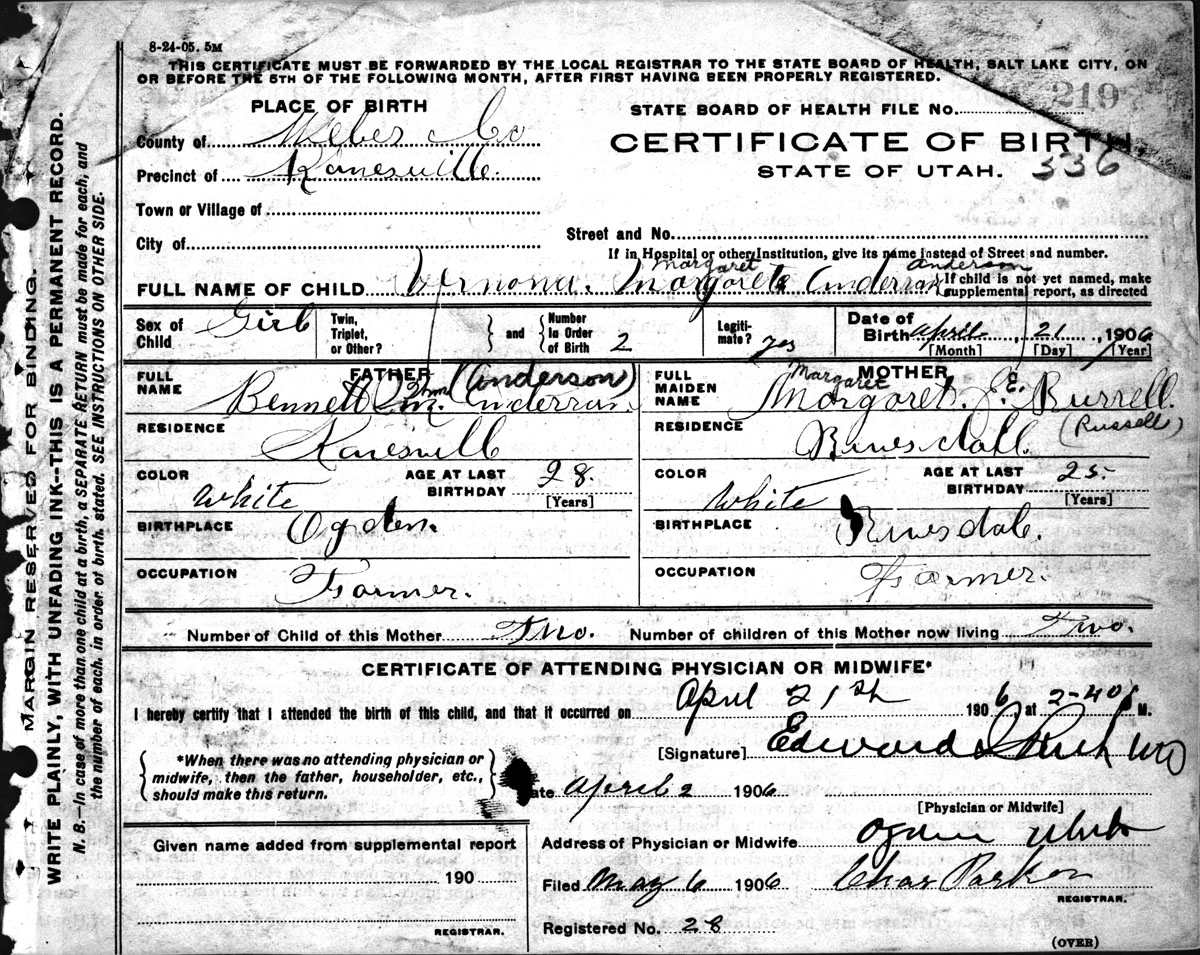 8-24-05. 5M
THIS CERTIFICATE MUST BE FORWARDED BY THE LOCAL REGISTRAR TO THE STATE BOARD OF HEALTH, SALT LAKE CITY, ON
OR BEFORE THE 5TH OF THE FOLLOWING MONTH, AFTER FIRST HAVING BEEN PROPERLY REGISTERED.
PLACE OF BIRTH
STATE BOARD OF HEALTH FILE No. 219
County of Weber Co
CERTIFICATE OF BIRTH.
Precinct of Kanesville.
STATE OF UTAH. 336
Town or Village of
City of
Street and No.
If in Hospital or other Institution, give its name instead of Street and number.
Margaret Anderson
FULL NAME OF CHILD Vernona. Margarete Anderson
If child is not yet named, make supplemental report, as directed
Sex of Child Girl
Twin, Triplet, or Other?
and
Number In Order of Birth 2
Legitimate? yes
Date of Birth April 21, 1906
[Month] [Day] [Year]
FATHER
FULL NAME Bennett Wm. Anderson. (Anderson)
RESIDENCE Kanesville
COLOR White
AGE AT LAST BIRTHDAY 28.
[Years]
BIRTHPLACE Ogden.
OCCUPATION Farmer.
MOTHER
Margaret
FULL MAIDEN NAME Margaret. E. Russell.
(Russell)
RESIDENCE
COLOR White
AGE AT LAST BIRTHDAY 25.
[Years]
BIRTHPLACE
OCCUPATION Farmer.
Number of Child of this Mother Two.
Number of children of this Mother now living Two.
CERTIFICATE OF ATTENDING PHYSICIAN OR MIDWIFE*
I hereby certify that I attended the birth of this child, and that it occurred on April 21st 1906 at 2-40 M.
[Signature] Edward
*When there was no attending physician or
midwife, then the father, householder, etc.,
should make this return.
Date April 2 1906
[Physician or Midwife]
Given name added from supplemental report
190
REGISTRAR.
Address of Physician or Midwife Ogden Utah
Filed May 6 1906 Chas Parker
REGISTRAR.
Registered No. 28
(OVER)
MARGIN RESERVED FOR BINDING.
WRITE PLAINLY, WITH UNFADING INK--THIS IS A PERMANENT RECORD.
N. B.—In case of more than one child at a birth, a SEPARATE RETURN must be made for each, and
the number of each, in order of birth, stated. SEE INSTRUCTIONS ON OTHER SIDE.